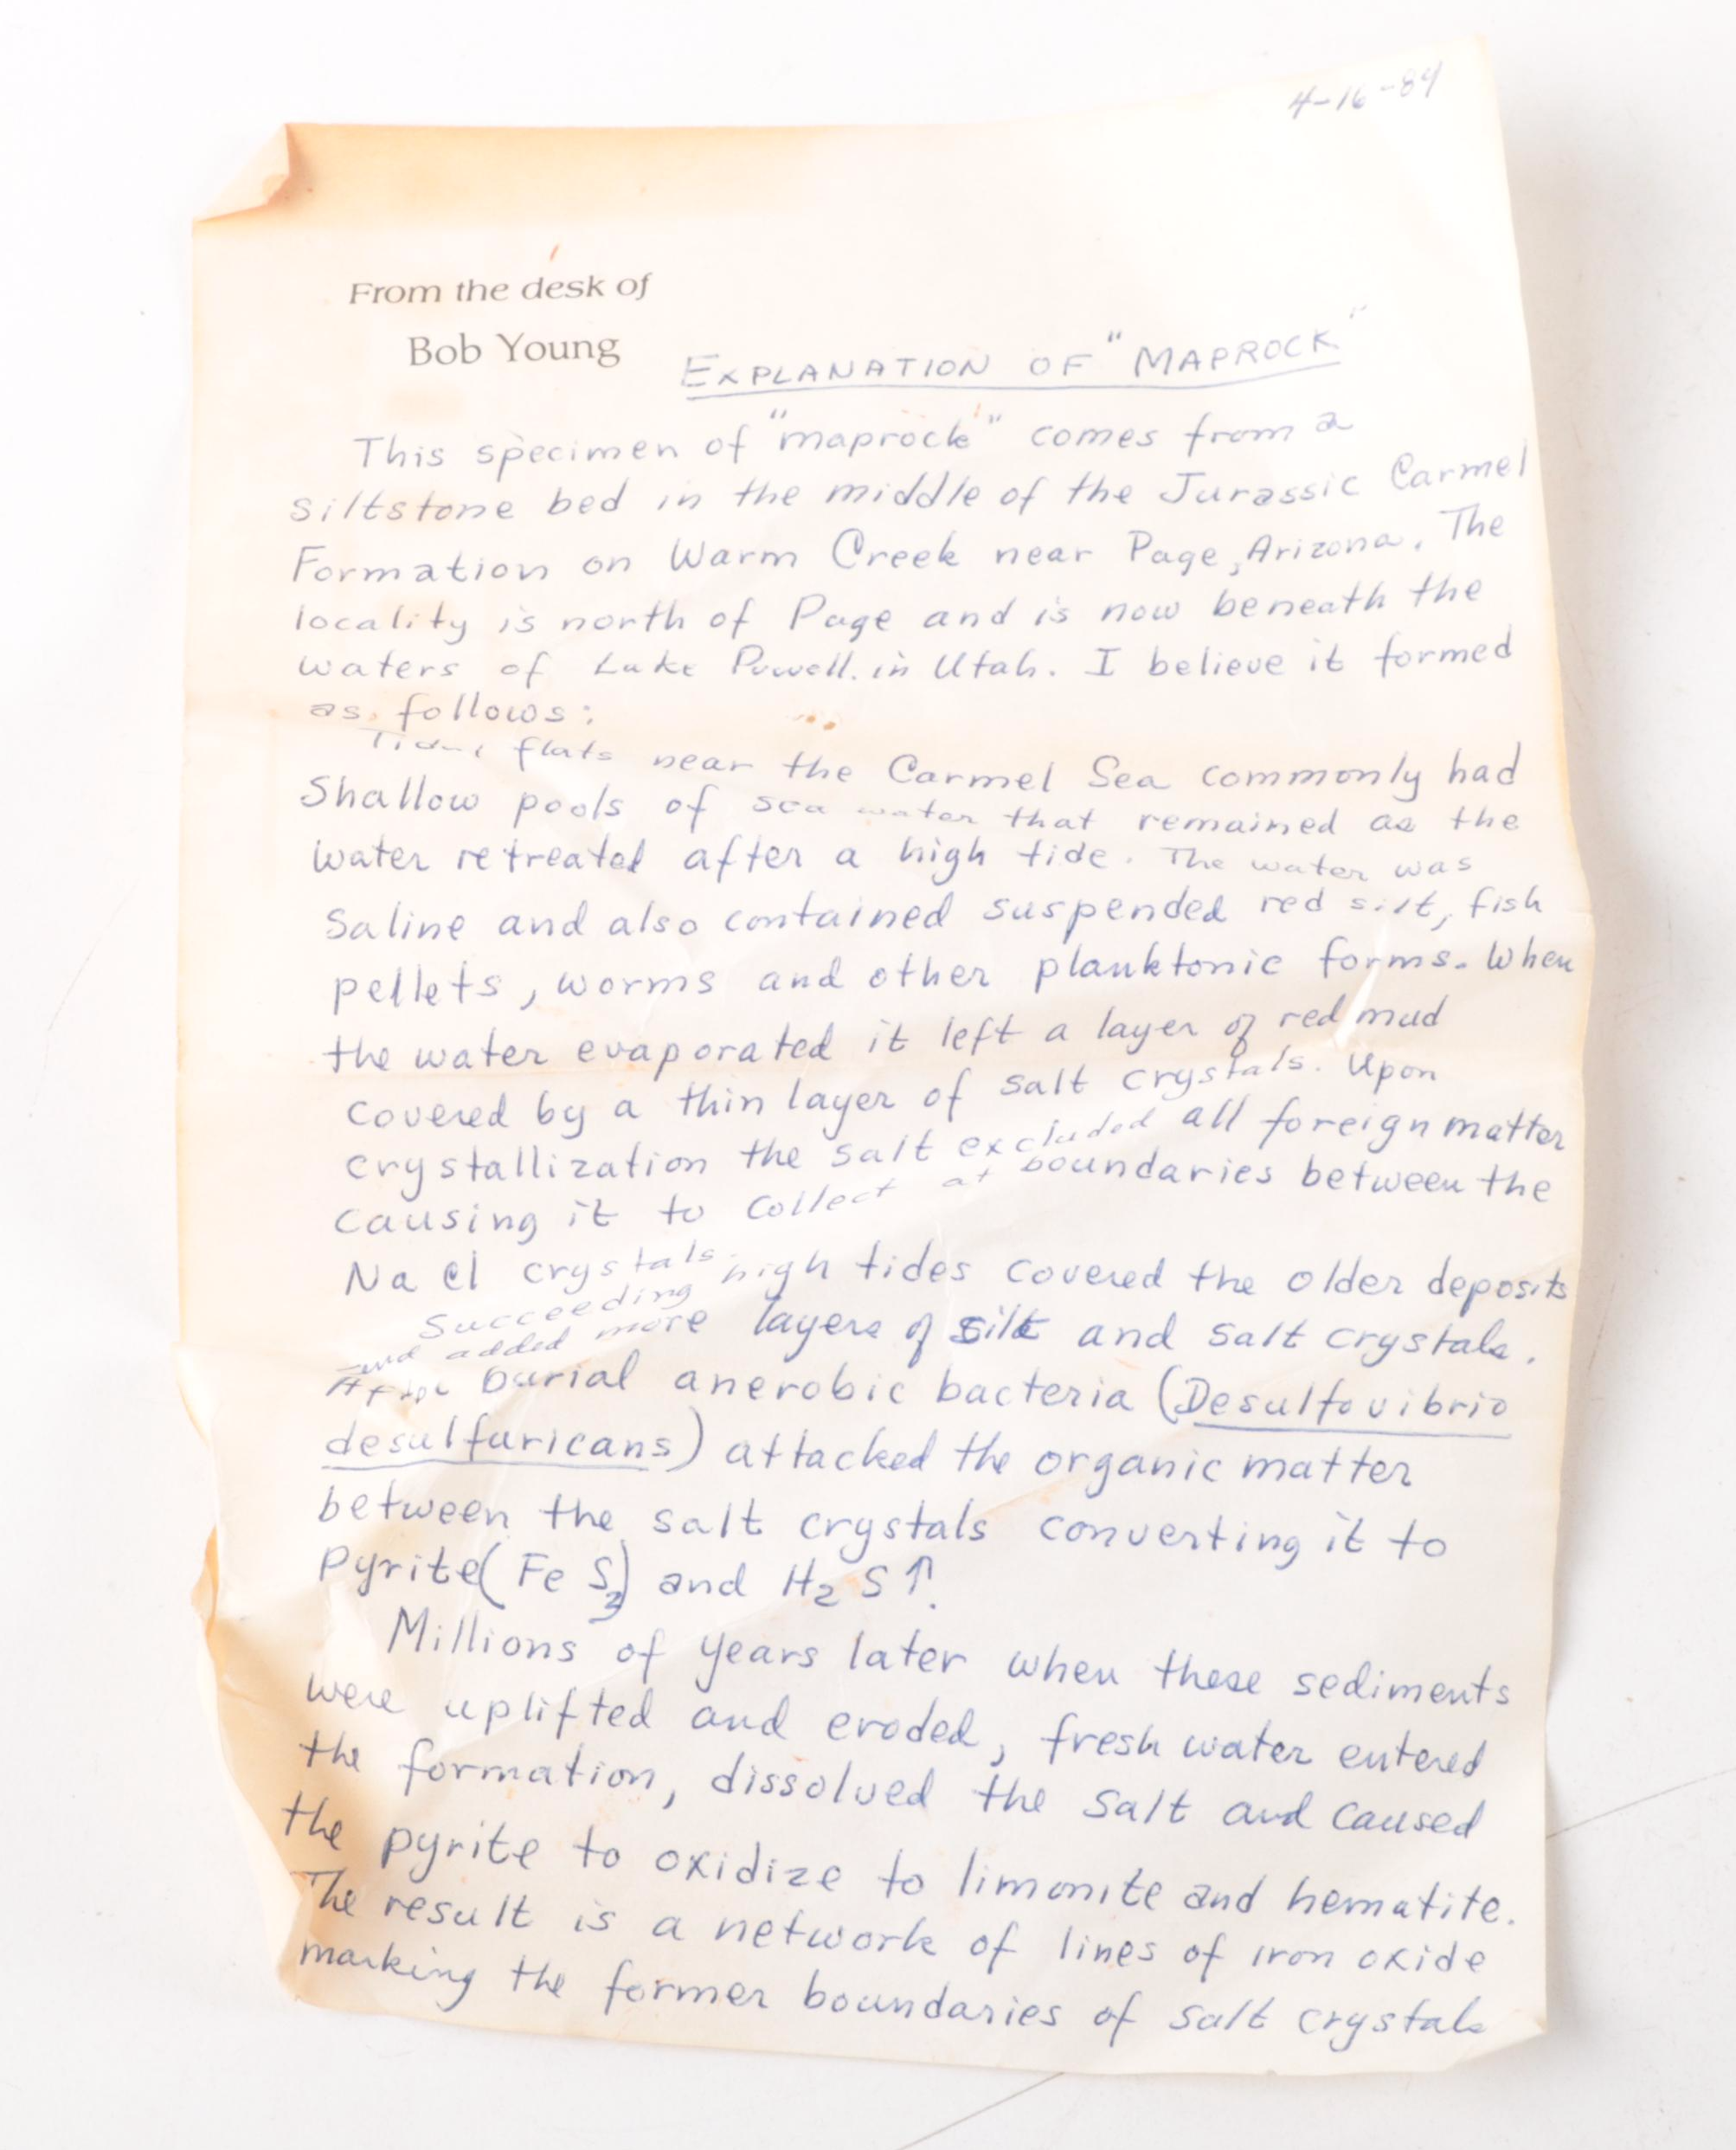 4-16-84
From the desk of
Bob Young
EXPLANATION OF "MAPROCK"
This specimen of "maprock" comes from a
siltstone bed in the middle of the Jurassic Carmel
Formation on Warm Creek near Page, Arizona. The
locality is north of Page and is now beneath the
waters of Lake Powell. in Utah. I believe it formed
as follows:
Tidal flats near the Carmel Sea commonly had
Shallow pools of sea water that remained as the
water retreated after a high tide. The water was
Saline and also contained suspended red silt, fish
pellets, worms and other planktonic forms. When
the water evaporated it left a layer of red mud
covered by a thin layer of salt crystals. Upon
crystallization the salt excluded all foreign matter
causing it to collect at boundaries between the
Na Cl crystals.
Succeeding high tides covered the older deposits
and added more layers of silt and salt crystals.
After burial anerobic bacteria (Desulfovibrio
desulfuricans) attacked the organic matter
between the salt crystals converting it to
pyrite (Fe S2) and H2 S↑.
Millions of years later when these sediments
were uplifted and eroded, fresh water entered
the formation, dissolved the salt and caused
the pyrite to oxidize to limonite and hematite.
The result is a network of lines of iron oxide
marking the former boundaries of salt crystals